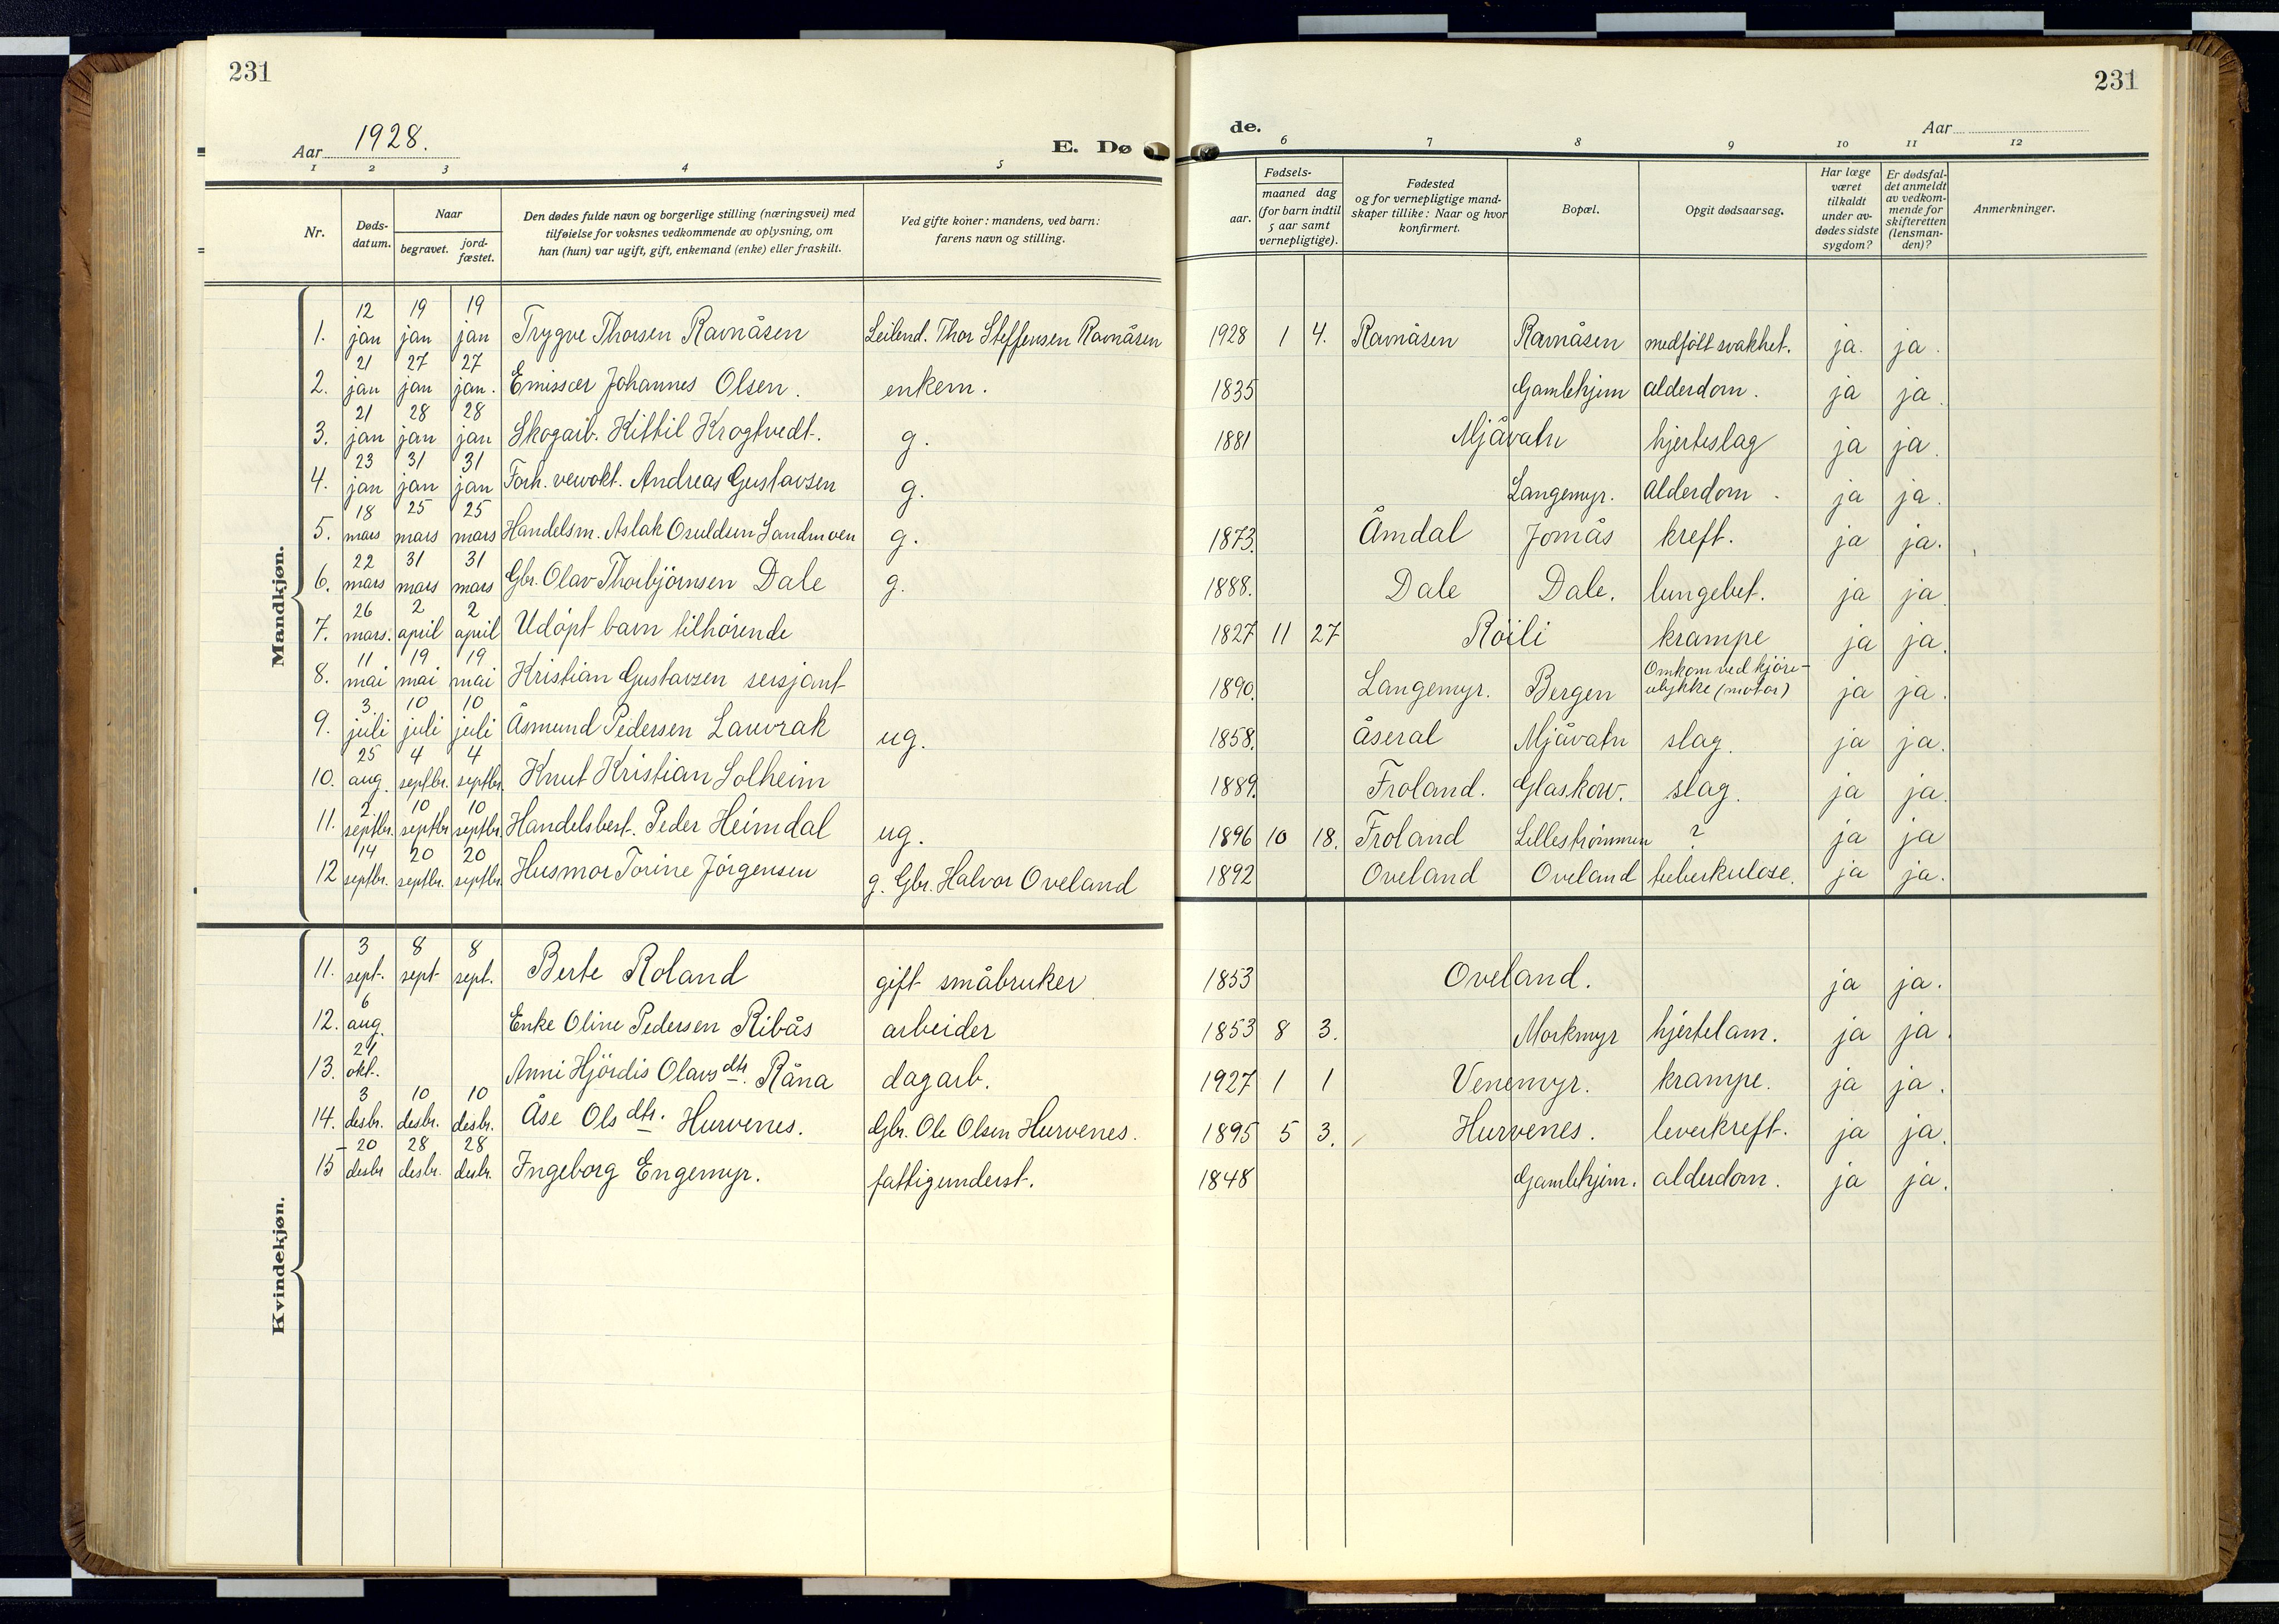 231
Aar 1928.
E. Dø
1 2 3 4 5
Nr.
Døds-
datum.
Naar
begravet.
jord-
fæstet.
Den dødes fulde navn og borgerlige stilling (næringsvei) med
tilføielse for voksnes vedkommende av oplysning, om
han (hun) var ugift, gift, enkemand (enke) eller fraskilt.
Ved gifte koner: mandens, ved barn:
farens navn og stilling.
231
de.
Aar
6 7 8 9 10 11 12
Fødsels-
aar.
maaned dag
(for barn indtil
5 aar samt
vernepligtige).
Fødested
og for vernepligtige mand-
skaper tillike: Naar og hvor
konfirmert.
Bopæl.
Opgit dødsaarsag.
Har læge
været
tilkaldt
under av-
dødes sidste
sygdom?
Er dødsfal-
det anmeldt
av vedkom-
mende for
skifteretten
(lensman-
den)?
Anmerkninger.
Mandkjøn.
12 19 19
1. jan jan jan Trygve Thorsen Ravnåsen Leilend. Thor Steffensen Ravnåsen 1928 1 4. Ravnåsen Ravnåsen medfött svakhet. ja. ja.
21 27 27
2. jan jan jan. Emissær Johannes Olsen. enkem. 1835 Gamlehjem alderdom. ja ja.
21 28 28
3. jan jan jan Skogarb. Kittil Krogtvedt. g. 1881 Mjåvatn hjerteslag ja ja.
23 31 31
4. jan jan jan Andreas Gustavsen g. Langemyr. alderdom. ja ja.
18 25 25
5. mars mars mars Handelsm. Aslak Osuldsen Sandmoen g. 1873. Åmdal Jomås kreft. ja ja.
22 31 31
6. mars mars mars Gbr. Olav Thorbjörnsen Dale g. 1888. Dale Dale. lungebet. ja ja.
26 2 2
7. mars. april april Udöpt barn tilhörende 1827 11 27 Röili krampe ja ja.
11 19 19
8. mai mai mai Kristian Gustavsen sersjant 1890. Langemyr. Bergen Omkom ved kjöre-
ulykke (motor) ja ja.
3. 10 10
9. juli juli juli Åsmund Pedersen Lauvrak ug. 1858. Åseral Mjåvatn slag. ja ja.
25 4 4
10. aug. septbr. septbr. Knut Kristian Solheim 1889. Froland. Glaskow. slag. ja ja.
2. 10 10
11. septbr. septbr septbr. Handelsbest. Peder Heimdal ug. 1896 10 18. Froland Lilleströmmen ? ja ja
14 20 20
12 septbr. septbr. septbr. Husmor Torine Jörgensen g. Gbr. Halvor Oveland 1892 Oveland Oveland tuberkulose. ja ja.
Kvindekjøn.
3 8 8
11. sept. sept sept. Berte Roland gift småbruker 1853 Oveland. ja ja.
6
12. aug. Enke Oline Pedersen Ribås arbeider 1853 8 3. Morkmyr hjertelam. ja ja.
21
13. okt. Anni Hjördis Olavsdtr. Råna dagarb. 1927 1 1 Venemyr. krampe. ja ja.
3 10 10
14. desbr. desbr. desbr. Åse Olsdtr. Hurvenes. Gbr. Ole Olsen Hurvenes. 1895 5 3. Hurvenes. leverkreft. ja ja.
20 28 28
15 desbr desbr. desbr. Ingeborg Engemyr. fattigunderst. 1848 Gamlehjem. alderdom. ja ja.